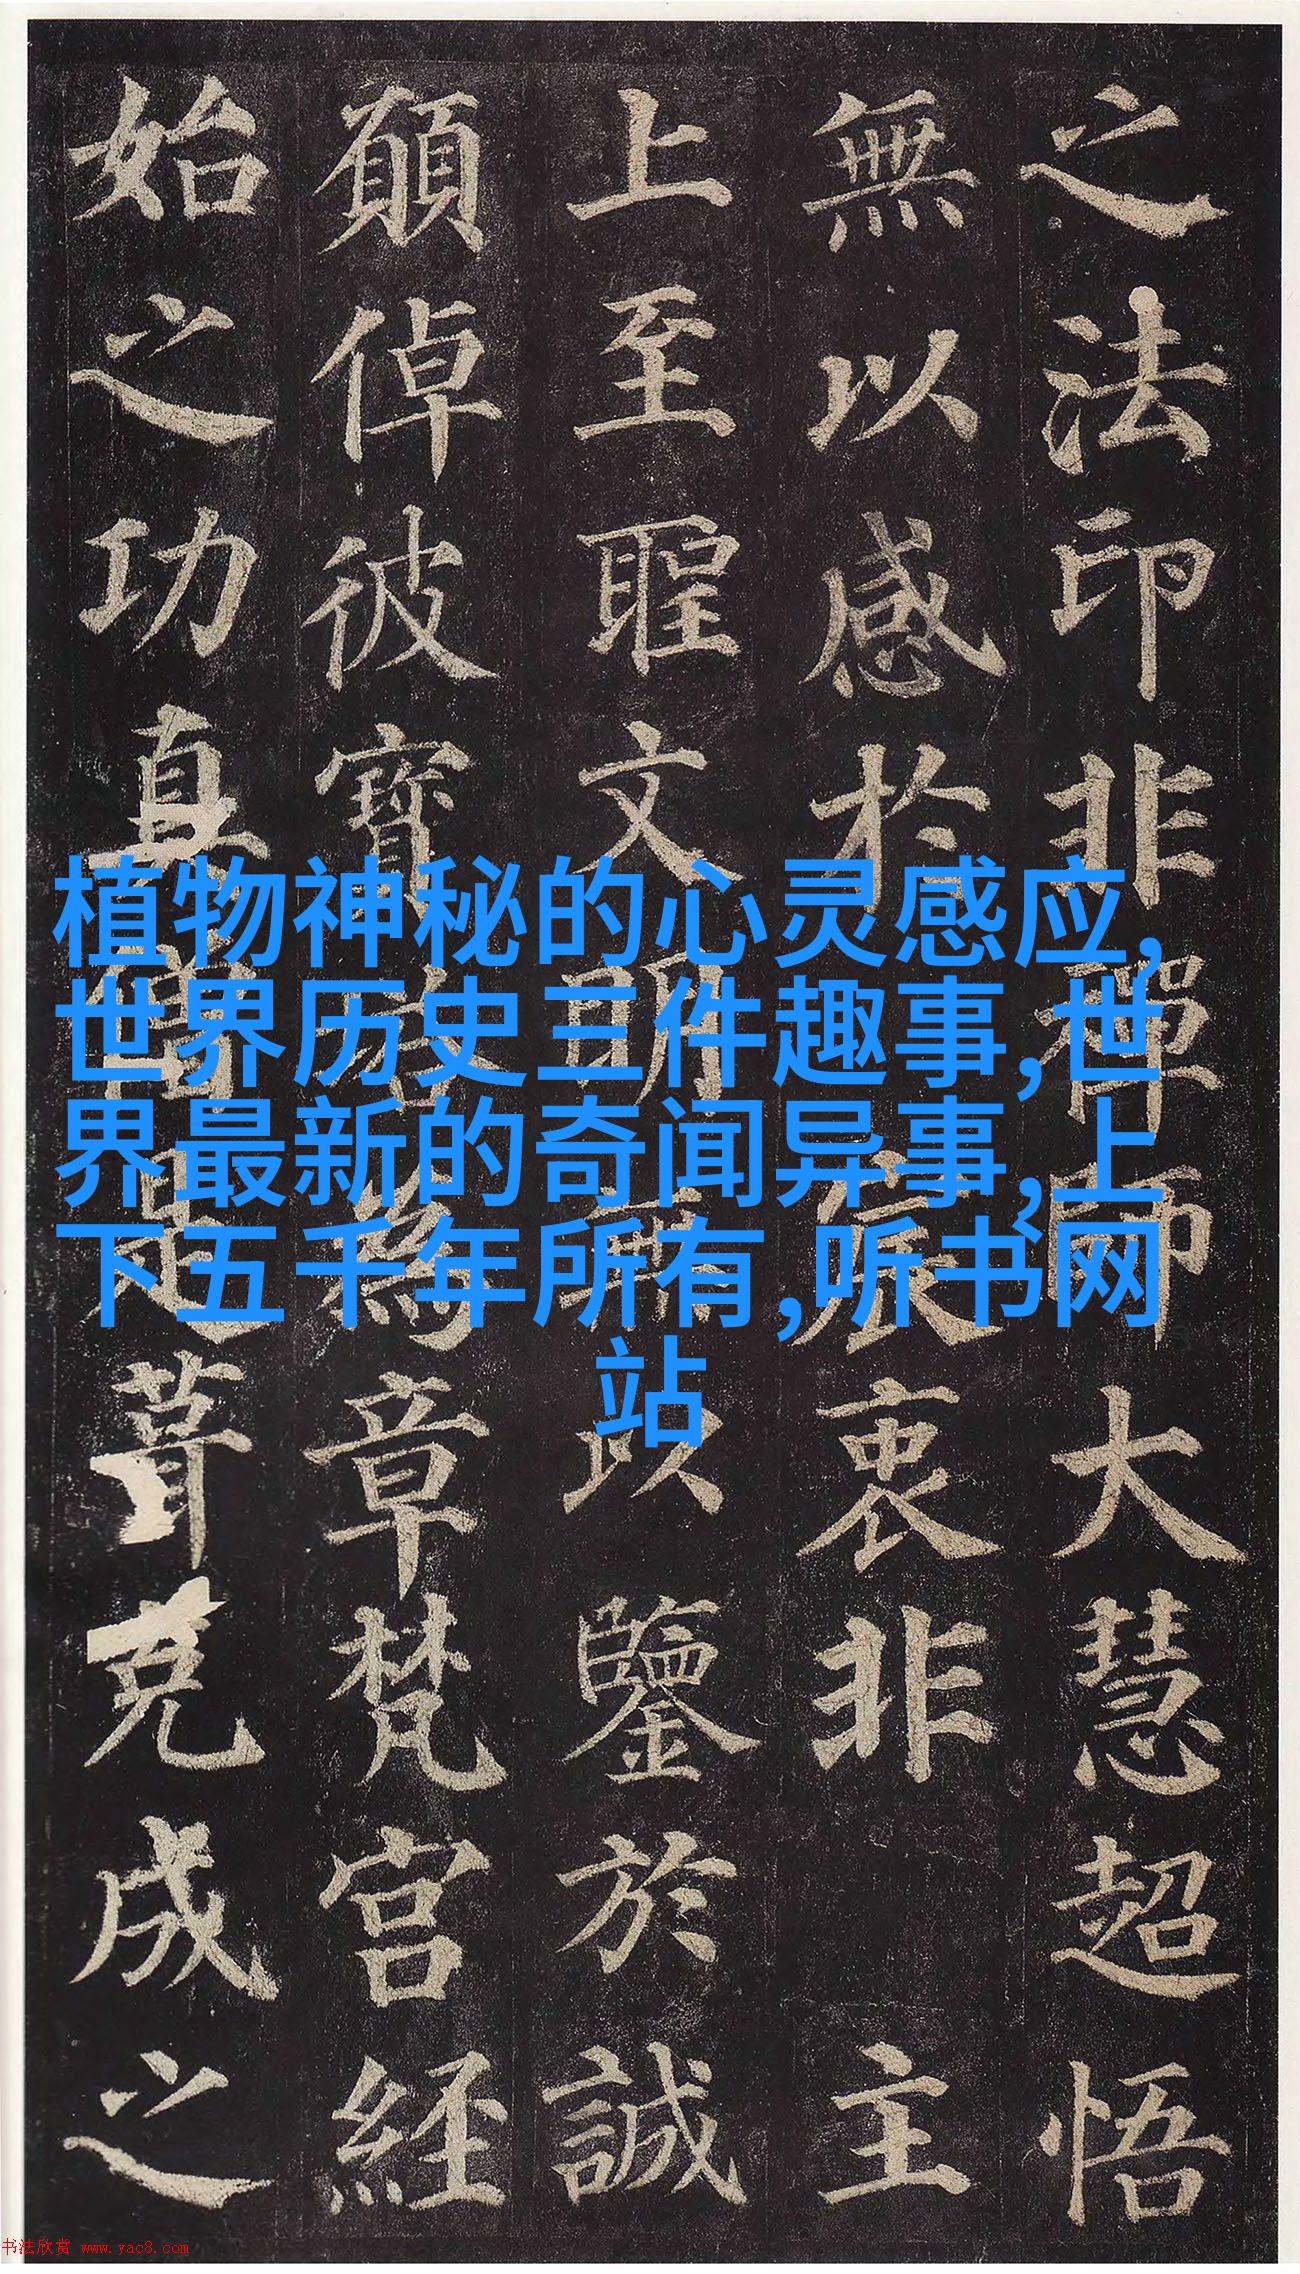 之法印非禪師大慧超悟
無以感於宸衷非主
上至聖文明無以鑒於誠
願倬彼寶塔為章梵宮經
始之功真僧是葺克成之
植物神秘的心灵感应,
世界历史三件趣事,世
界最新的奇闻异事,上
下五千年所有,听书网
站
书法欣赏 www.yac8.com